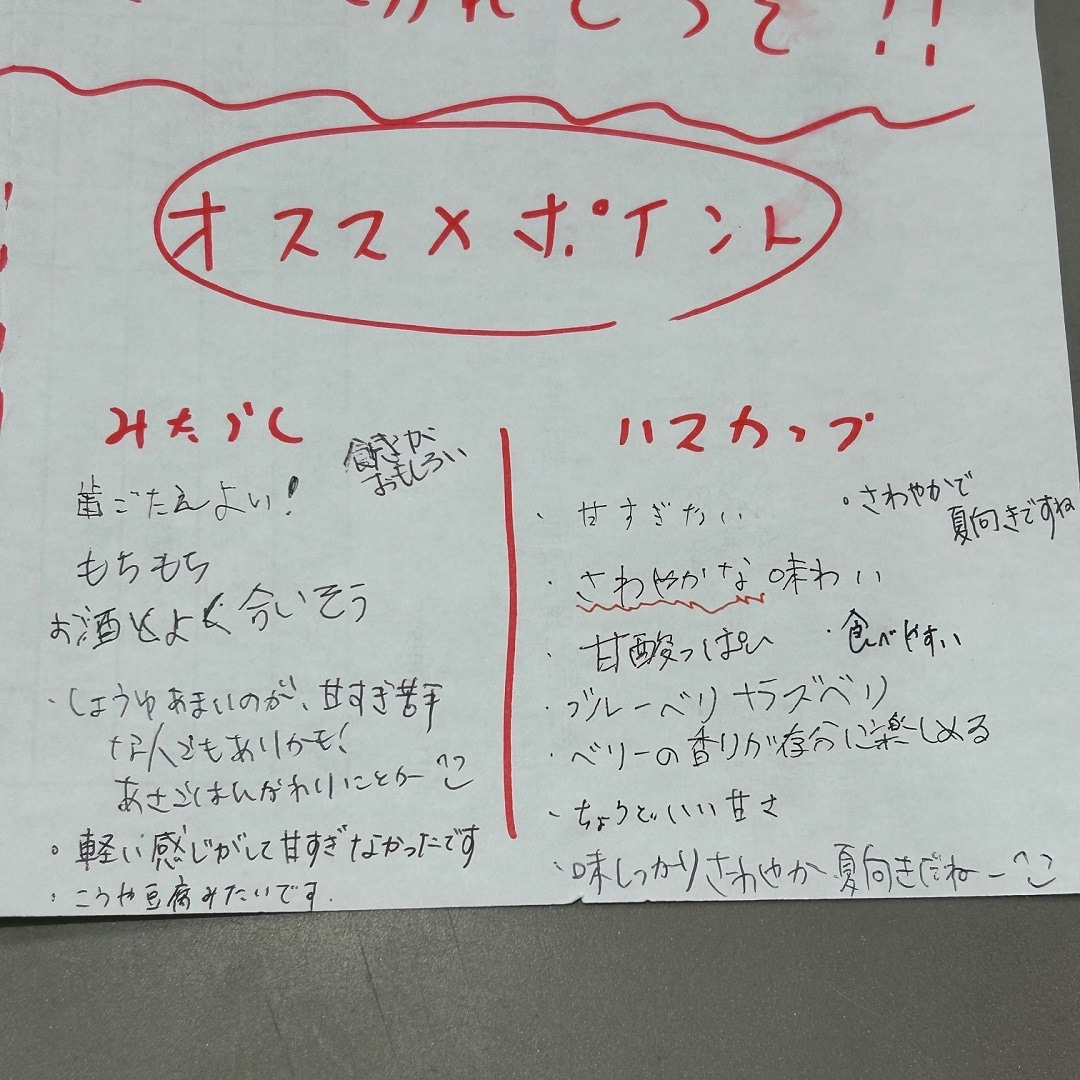 どうぞ!!
オススメポイント
みたらし
食感が
おもしろい
歯ごたえよい!
もちもち
お酒とよく合いそう
・しょうゆあまいのが、甘すぎ苦手
な人でもありかも!
あさごはんがわりにとかー
・軽い感じがして甘すぎなかったです
・こうや豆腐みたいです.
ハスカップ
・甘すぎない
・さわやかで
夏向きですね
・さわやかな味わい
・甘酸っぱい
・食べやすい
・ブルーベリ ラズベリ
・ベリーの香りが存分に楽しめる
・ちょうどいい甘さ
・味しっかりさわやか夏向きだねー